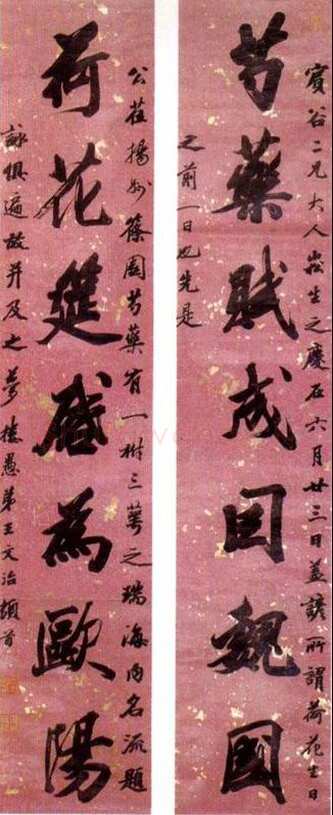 賓谷二兄大人崧生之慶在六月廿三日蓋諺所謂荷花生日
芍藥賦成因魏國
之前一日也先是
公莅揚州篠園芍藥有一樹三萼之瑞海內名流題
荷花筵啟為歐陽
詠俱遍故并及之 夢樓愚弟王文治頓首